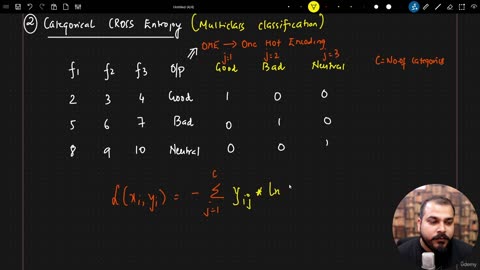 ② Categorical CROSS Entropy (Multiclass classification)
OHE → One Hot Encoding
j=1 j=2 j=3
f₁ f₂ f₃ O/p Good Bad Neutral C=No of categories
2 3 4 Good 1 0 0
5 6 7 Bad 0 1 0
8 9 10 Neutral 0 0 1
L(xᵢ, yᵢ) = - ∑ᶜⱼ₌₁ yᵢⱼ * ln
Udemy